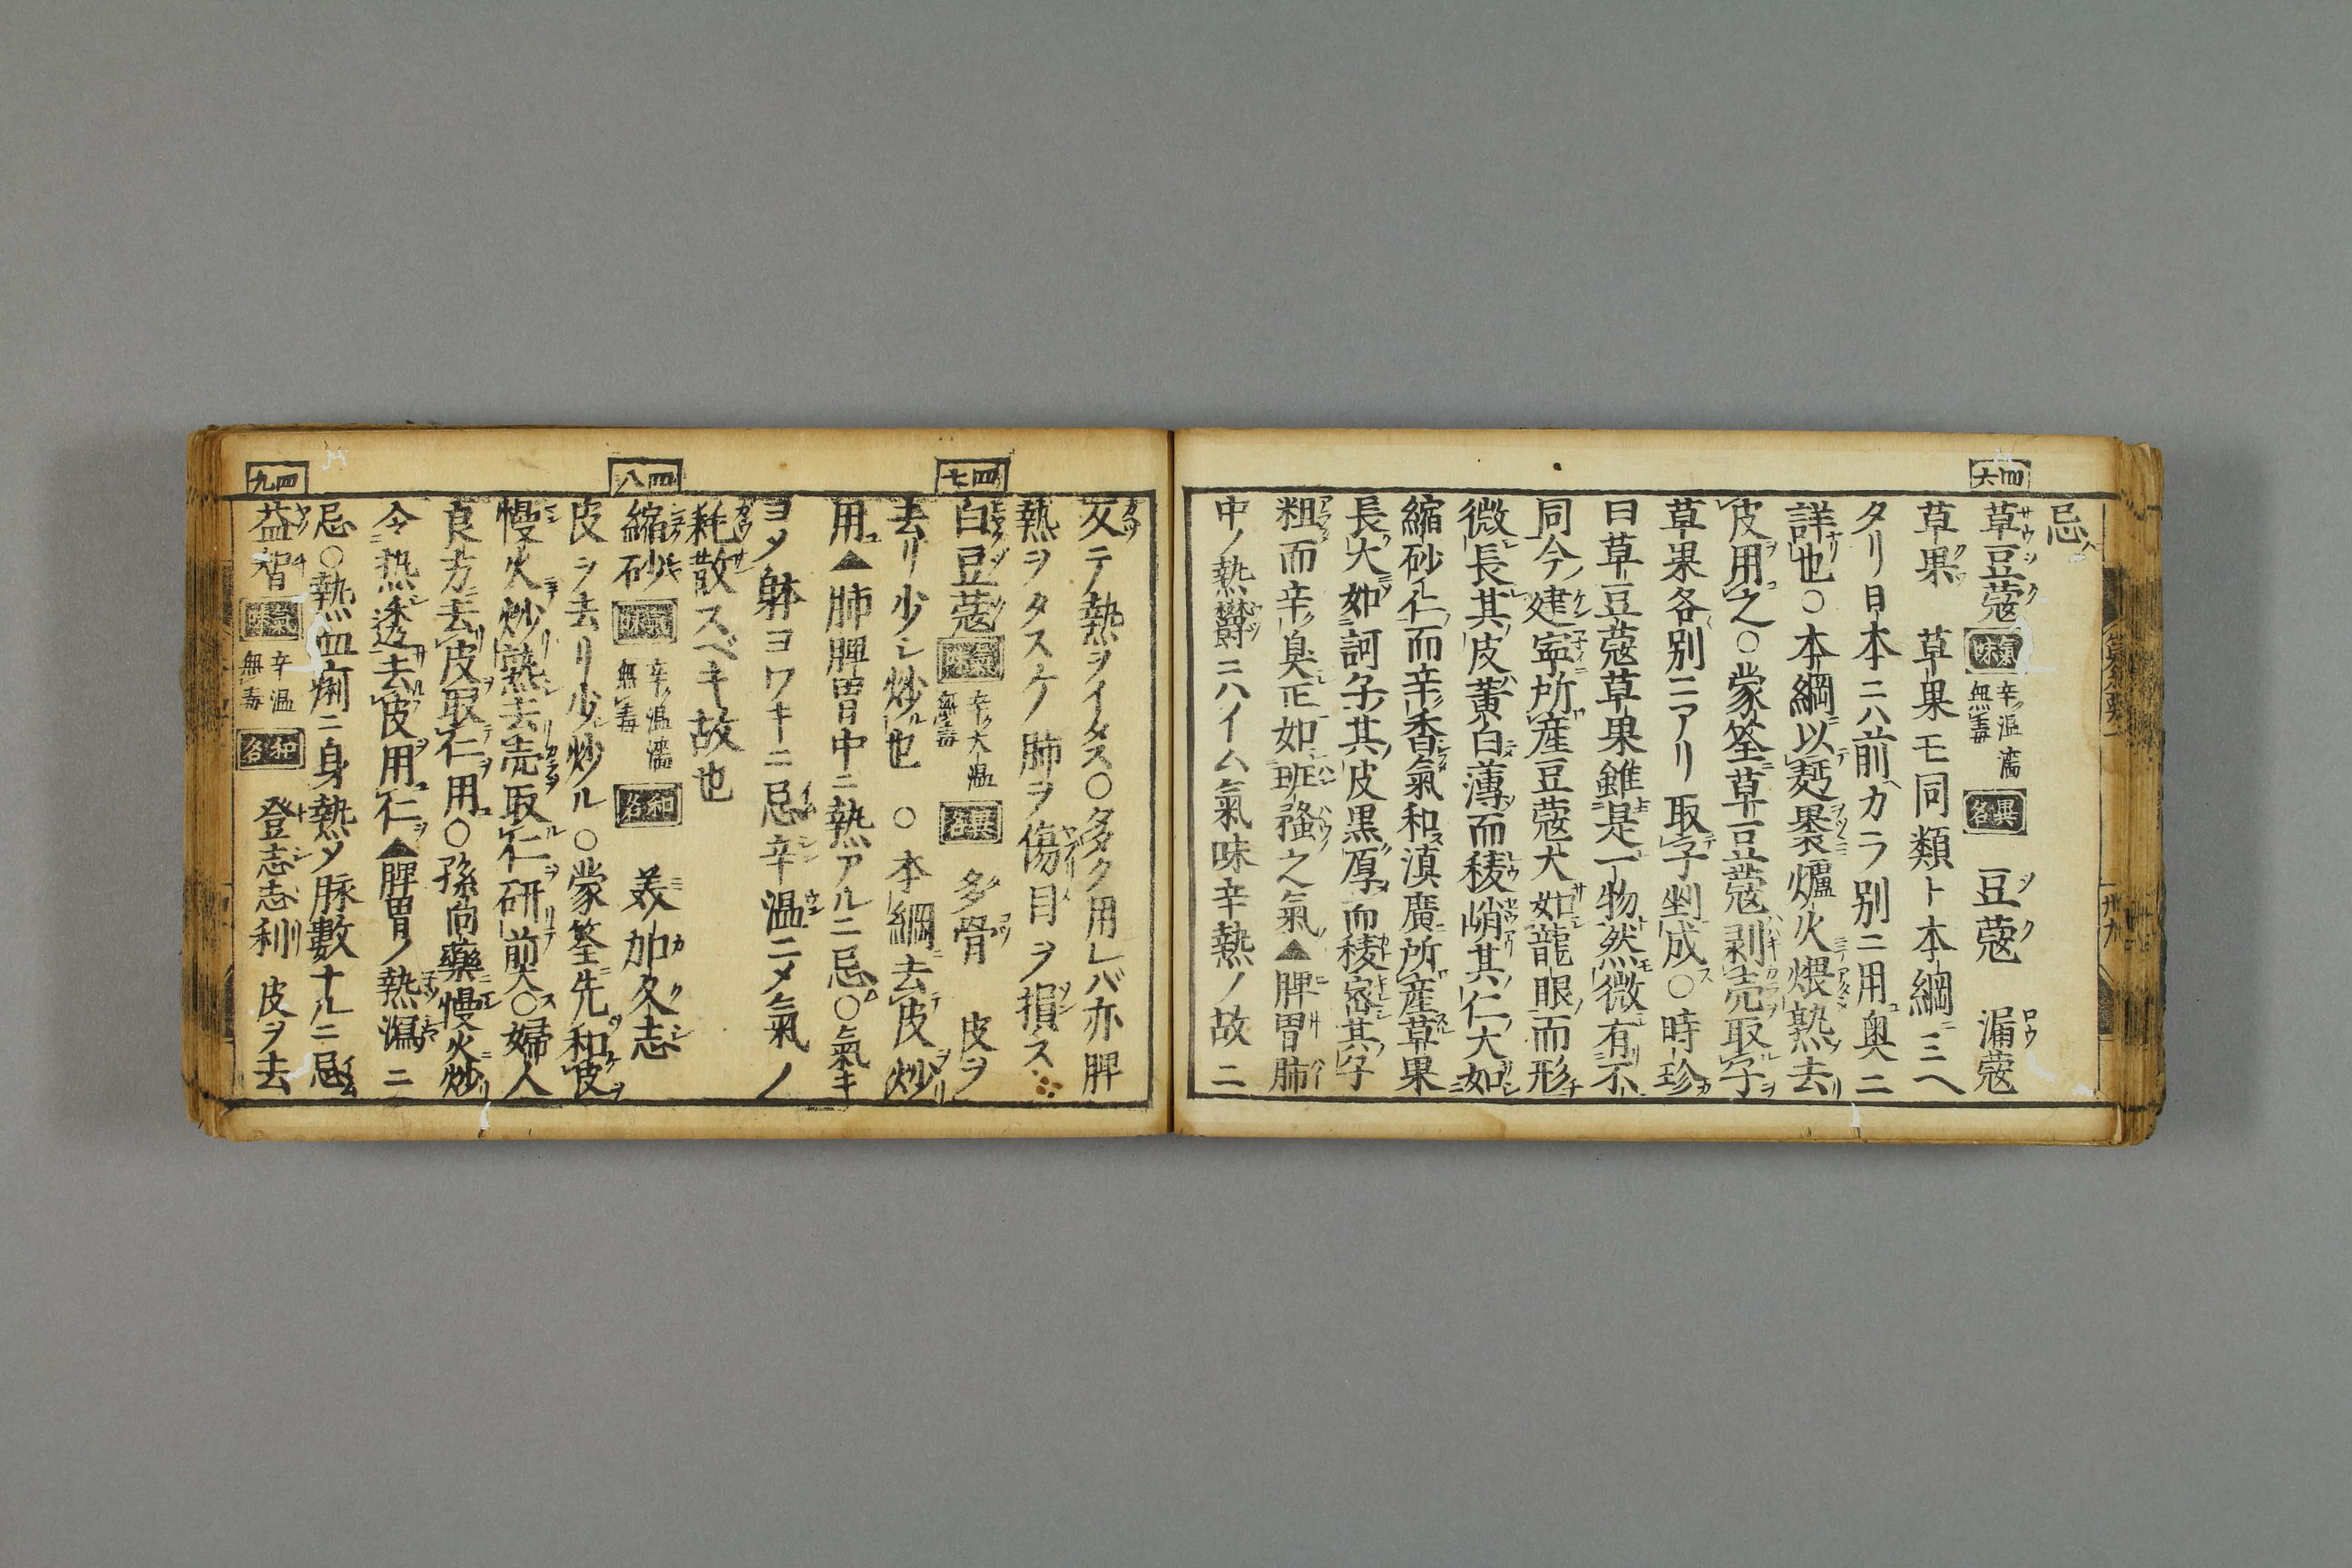 忌
四六
草豆蔲 氣味 辛温濇無毒 異名 豆蔲 漏蔲
草果 草果モ同類ト本綱ニミヘ
タリ日本ニハ前カラ別ニ用奥ニ
詳也○本綱以麪裹爐火煨熟去
皮用之○蒙筌草豆蔲剥売取子
草果各別ニアリ取子剉成○時珍
曰草豆蔲草果雖是一物然微有不
同今建寧所産豆蔲大如龍眼而形
微長其皮黄白薄而稜峭其仁大如
縮砂仁而辛香氣和滇廣所産草果
長大如訶子其皮黒厚而稜密其子
粗而辛臭正如斑蝥之氣▲脾胃肺
中ノ熱欝ニハイム氣味辛熱ノ故ニ
女テ熱ヲイタス○多ク用レバ亦脾
熱ヲタスケ肺ヲ傷目ヲ損ス
四七
白豆蔲 氣味 辛大温無毒 異名 多骨 皮ヲ
去リ少シ炒也 ○本綱去皮炒
用▲肺脾胃中ニ熱アルニ忌○氣キ
ヨメ躰ヨワキニ忌辛温ニメ氣ノ
耗散スベキ故也
四八
縮砂 氣味 辛温濇無毒 和名 美加久志
皮ヲ去リ少炒ル○蒙筌先和皮
慢火炒熟去売取仁研前入○婦人
良方去皮取仁用○孫尚藥慢火炒
令熱透去皮用仁▲脾胃ノ熱瀉ニ
忌○熱血痢ニ身熱メ脉數ナルニ忌
四九
益智 氣味 辛温無毒 和名 登志志利 皮ヲ去